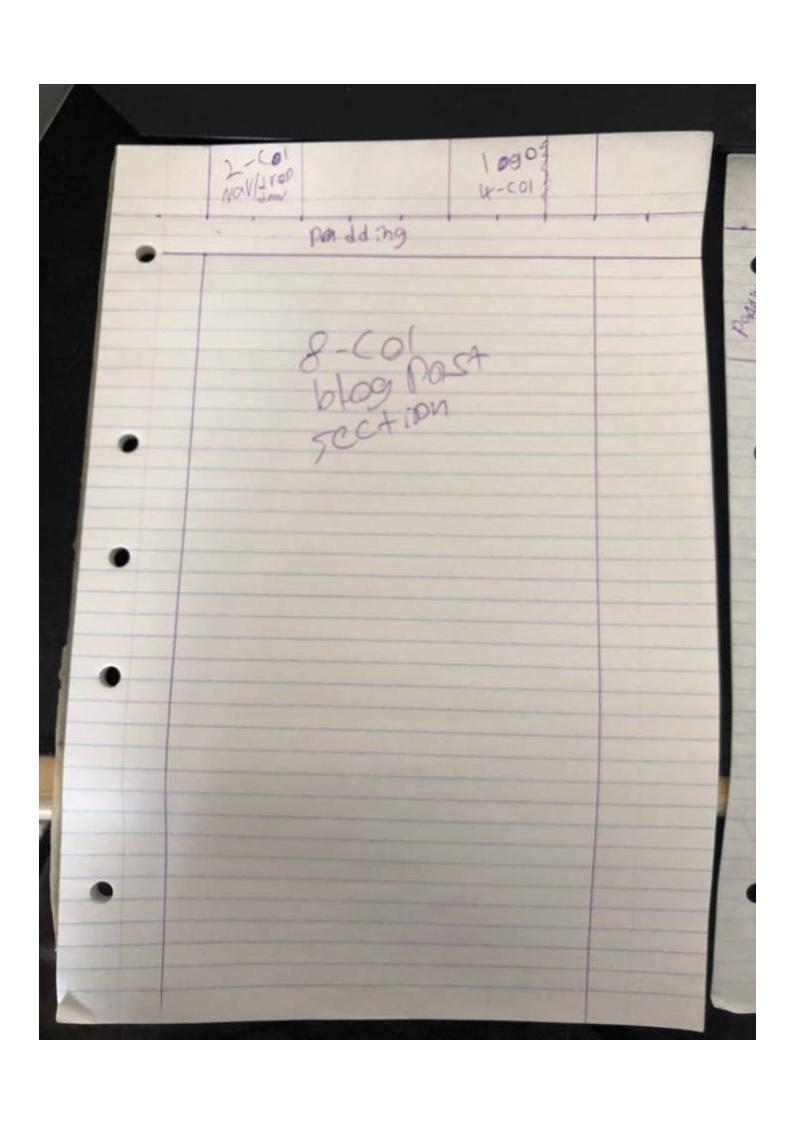 2-Col
Nav/drop
down
logo
4-col
padding
8-Col
blog Post
section